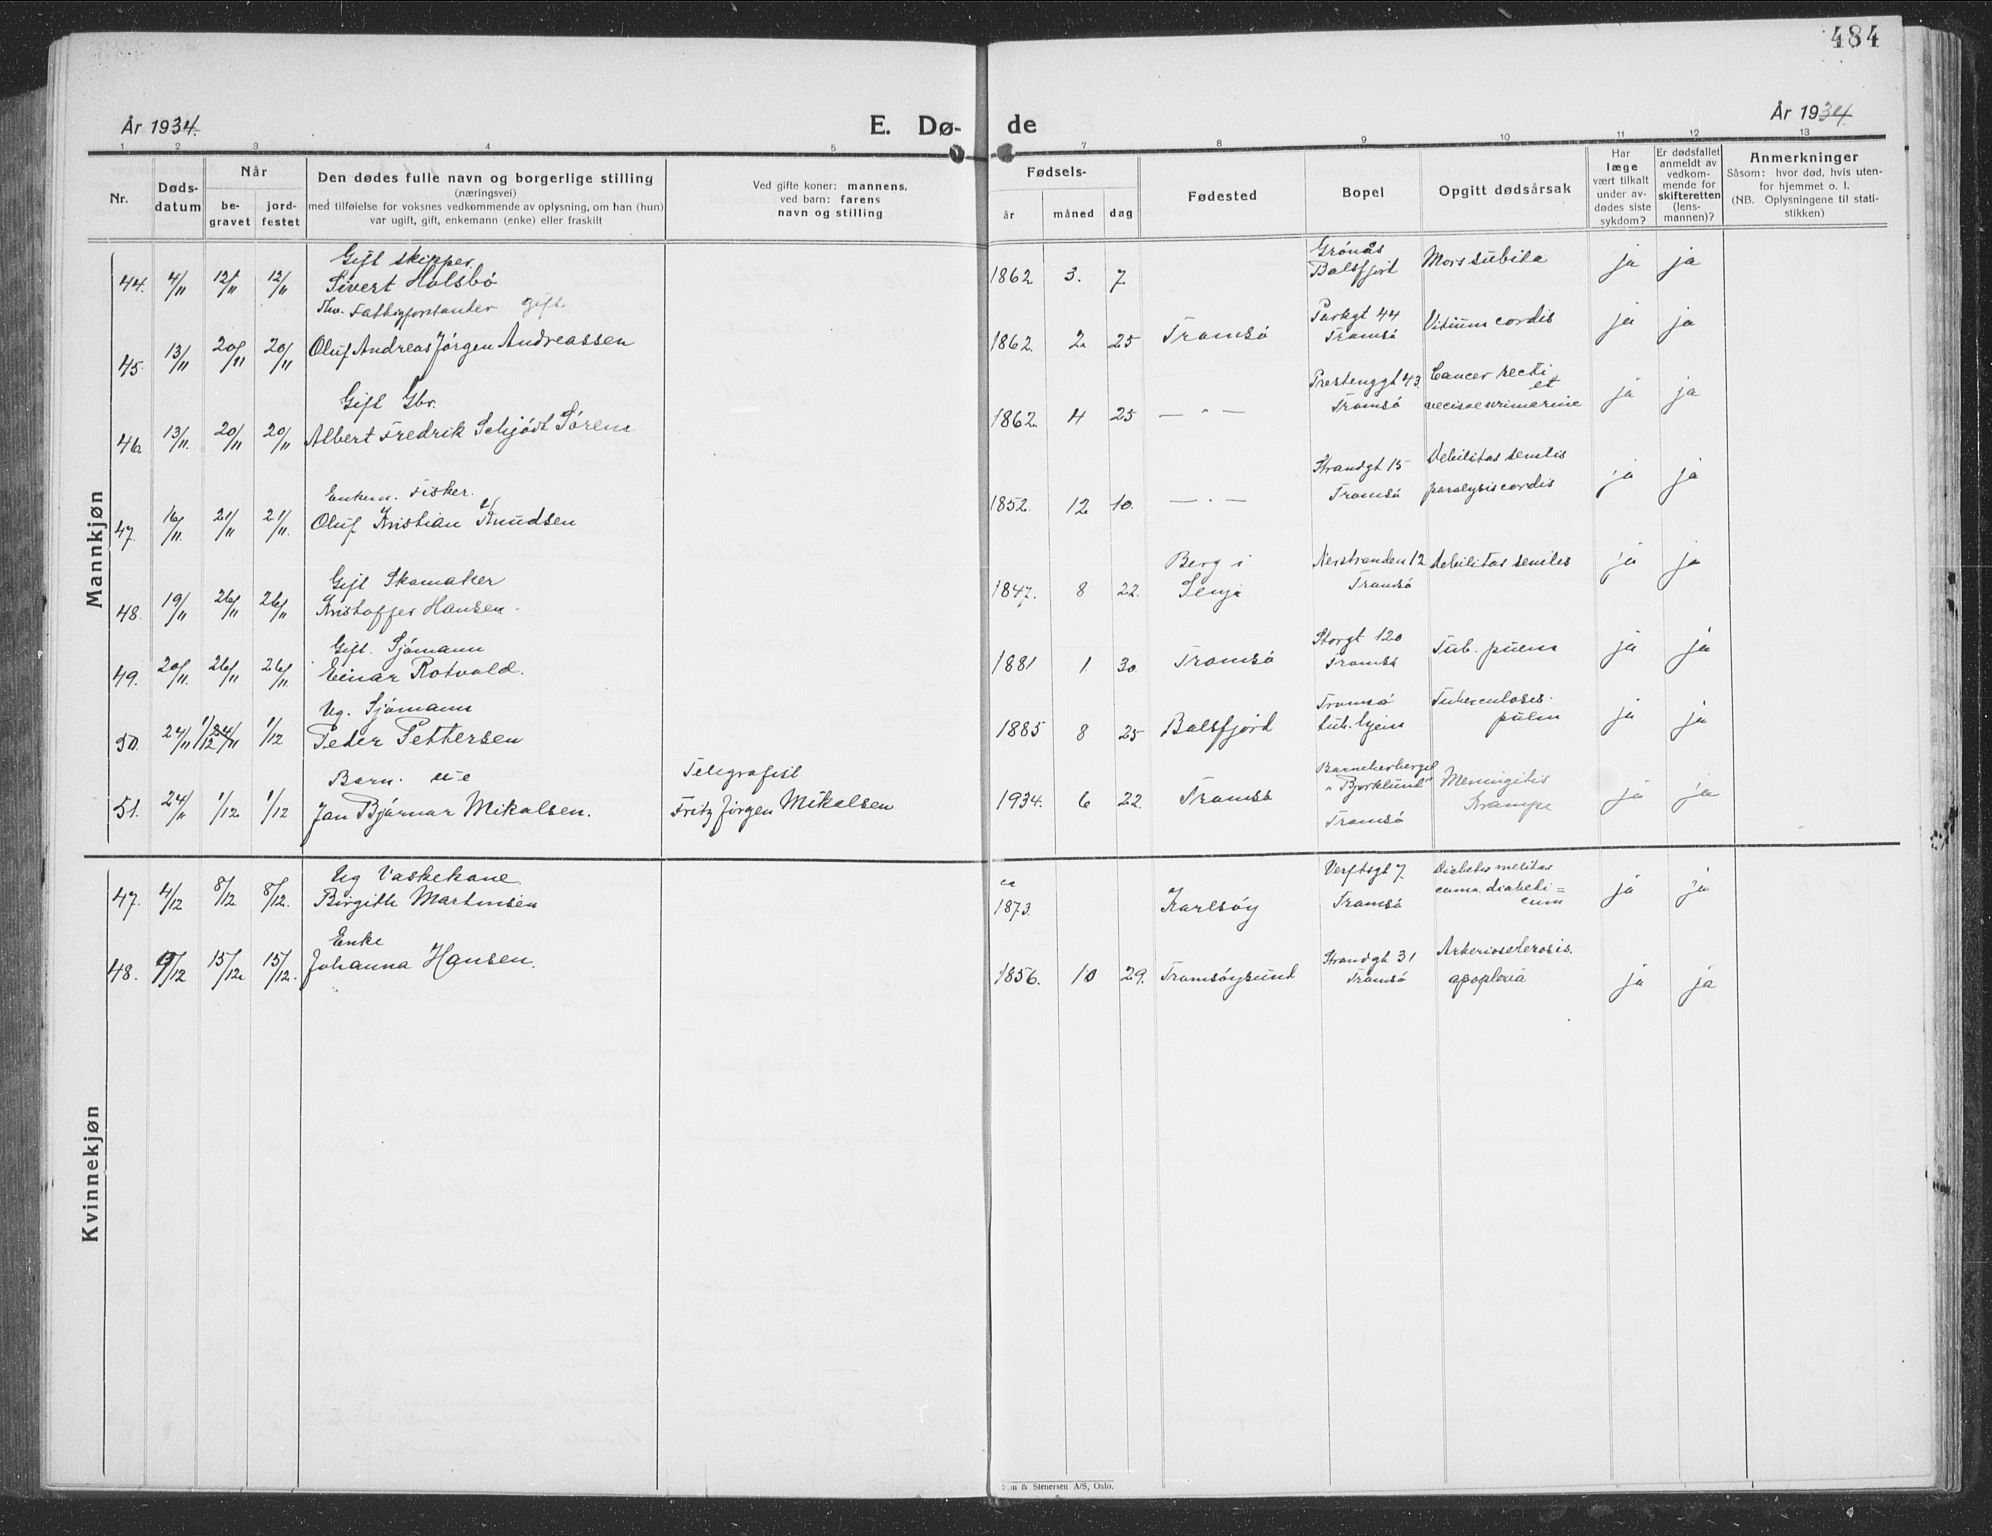 484
År 1934.
E. Dø-
de
År 1934.
1 2 3 4 5 7 8 9 10 11 12 13
Nr.
Døds-
datum
Når
be-
gravet
jord-
festet
Den dødes fulle navn og borgerlige stilling
(næringsvei)
med tilføielse for voksnes vedkommende av oplysning, om han (hun)
var ugift, gift, enkemann (enke) eller fraskilt
Ved gifte koner: mannens,
ved barn: farens
navn og stilling
Fødsels-
år måned dag
Fødested
Bopel
Opgitt dødsårsak
Har
læge
vært tilkalt
under av-
dødes siste
sykdom?
Er dødsfallet
anmeldt av
vedkom-
mende for
skifteretten
(lens-
mannen)?
Anmerkninger
Såsom: hvor død, hvis uten-
for hjemmet o. l.
(NB. Oplysningene til stati-
stikken)
Mannkjøn
Gift skipper
44. 4/11 12/11 12/11 Sivert Holsbö 1862 3. 7. Grönås Balsfjord Mors subita ja ja
Fattigforstander Gift
45. 13/11 20/11 20/11 Oluf Andreas Jörgen Andreassen 1862. 2. 25 Tromsö Parkgt 44 Tromsö Vitium cordis ja ja
Gift Gbr.
46. 13/11. 20/11 20/11 Albert Fredrik Schjödt Sörens 1862. 4 25 — " — Prestenggt 43. Tromsö Cancer recti et ja ja
Enkem. Fisker.
47. 16/11. 21/11 21/11. Oluf Kristian Knudsen 1852. 12 10. — " — Strandgt 15 Tromsö Debilitas senilis paralysis cordis ja ja
Gift Skomaker
48. 19/11 26/11 26/11 Kristoffer Hansen. 1847. 8 22. Berg i Senja Nerstranden 12 Tromsö Debilitas senilis ja ja
Gift. Sjömann
49. 20/11. 26/11 26/11. Einar Rotvold. 1881 1. 30. Tromsö Storgt 120 Tromsö Tub. pulm ja ja
Ug. Sjömann
50. 24/11 1/12 24/11 1/12 Peder Pettersen 1885 8 25 Balsfjord Tromsö tub. hjem Tuberculosis pulm ja ja
Barn. u-e Telegrafist
51. 24/11 1/12 1/12 Jan Bjårnar Mikalsen. Fritz Jörgen Mikalsen 1934. 6 22. Tromsö Barneherberget "Bjorklund" Tromsö Meningitis Krampe ja ja
Kvinnekjøn
Ug Vaskekone
47. 4/12 8/12 8/12. Birgith Martinsen ca 1873. Karlsöy Verftsgt 7. Tromsö Diabetes melitus coma diabeti= cum ja ja
Enke
48. 9/12 15/12 15/12. Johanna Hansen. 1856. 10 29. Tromsöysund Strandgt 31 Tromsö Arteriosclerosis. apoplexia ja ja
& Stenersen A/S, Oslo.